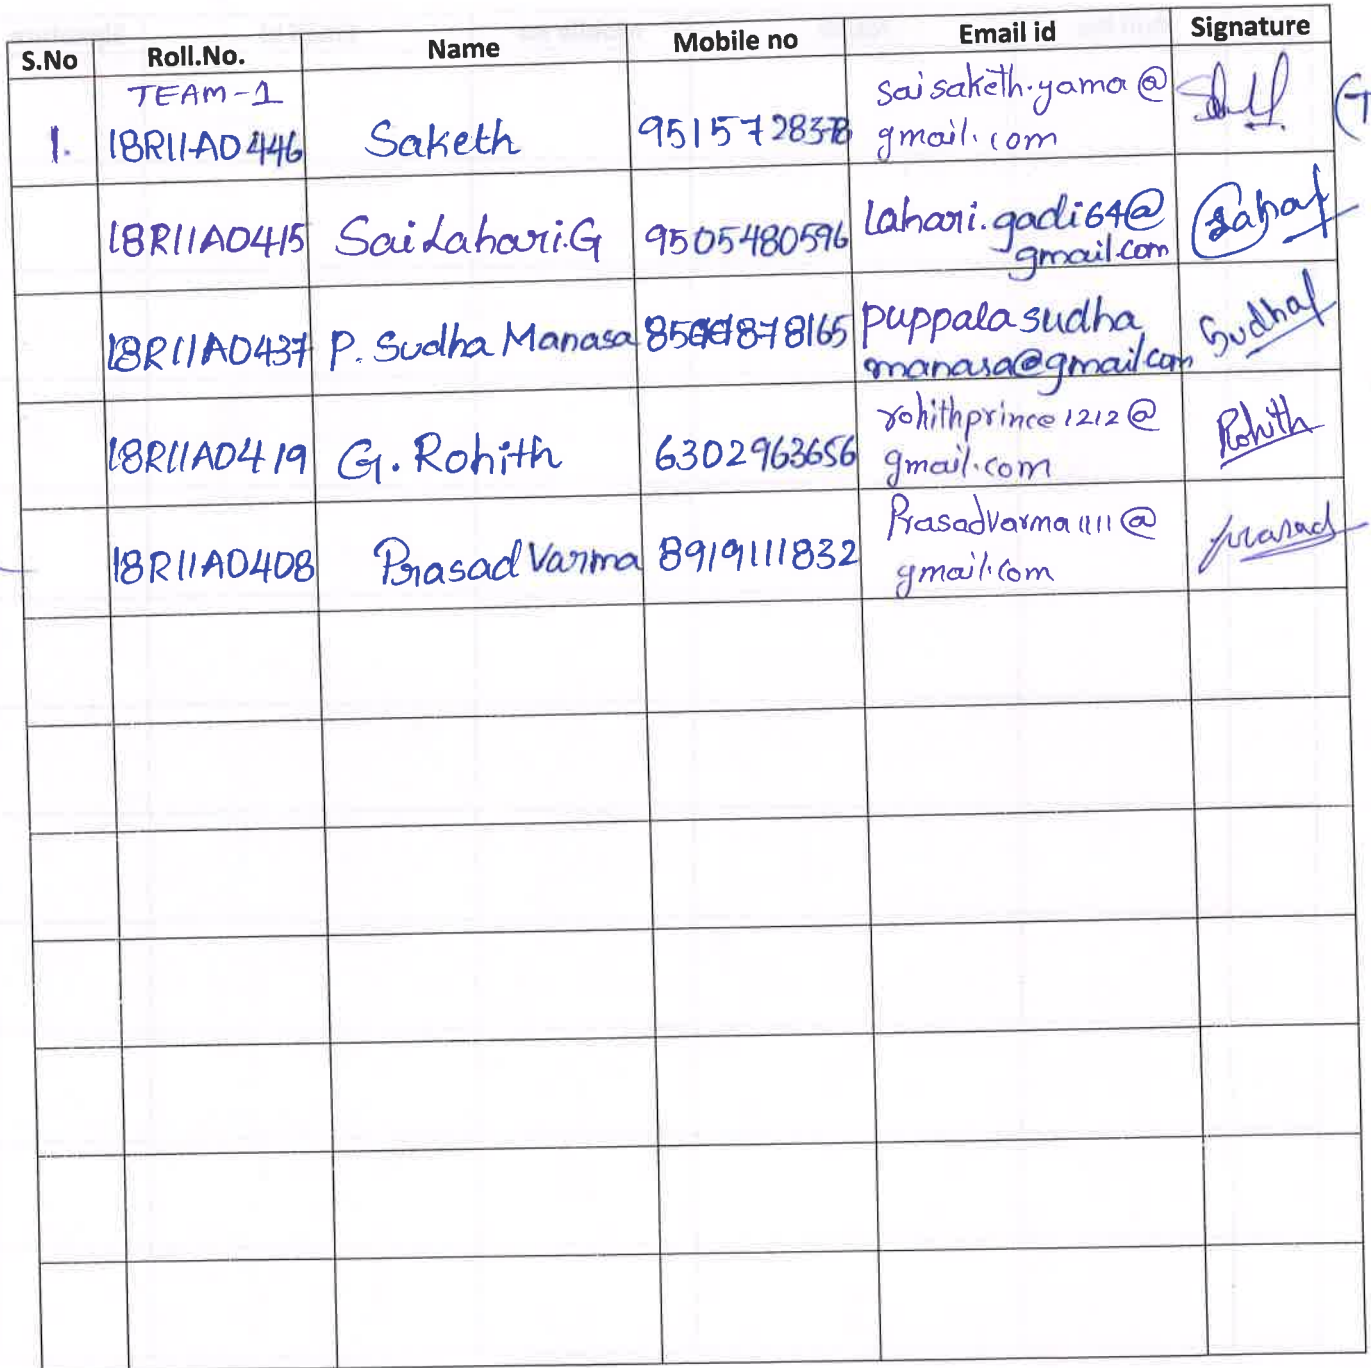 S.No Roll.No. Name Mobile no Email id Signature
TEAM-1
1. 18R11A0446 Saketh saisaketh.yama@
gmail.com
18R11A0415 Sai Lahari.G 9505480596 lahari.gadi64@
gmail.com
18R11A0437 P. Sudha Manasa puppalasudha
manasa@gmail.com Sudha
18R11A0419 G. Rohith 6302963656 rohithprince1212@
gmail.com Rohith
18R11A0408 Prasad Varma 8919111832 Prasadvarma1111@
gmail.com prasad